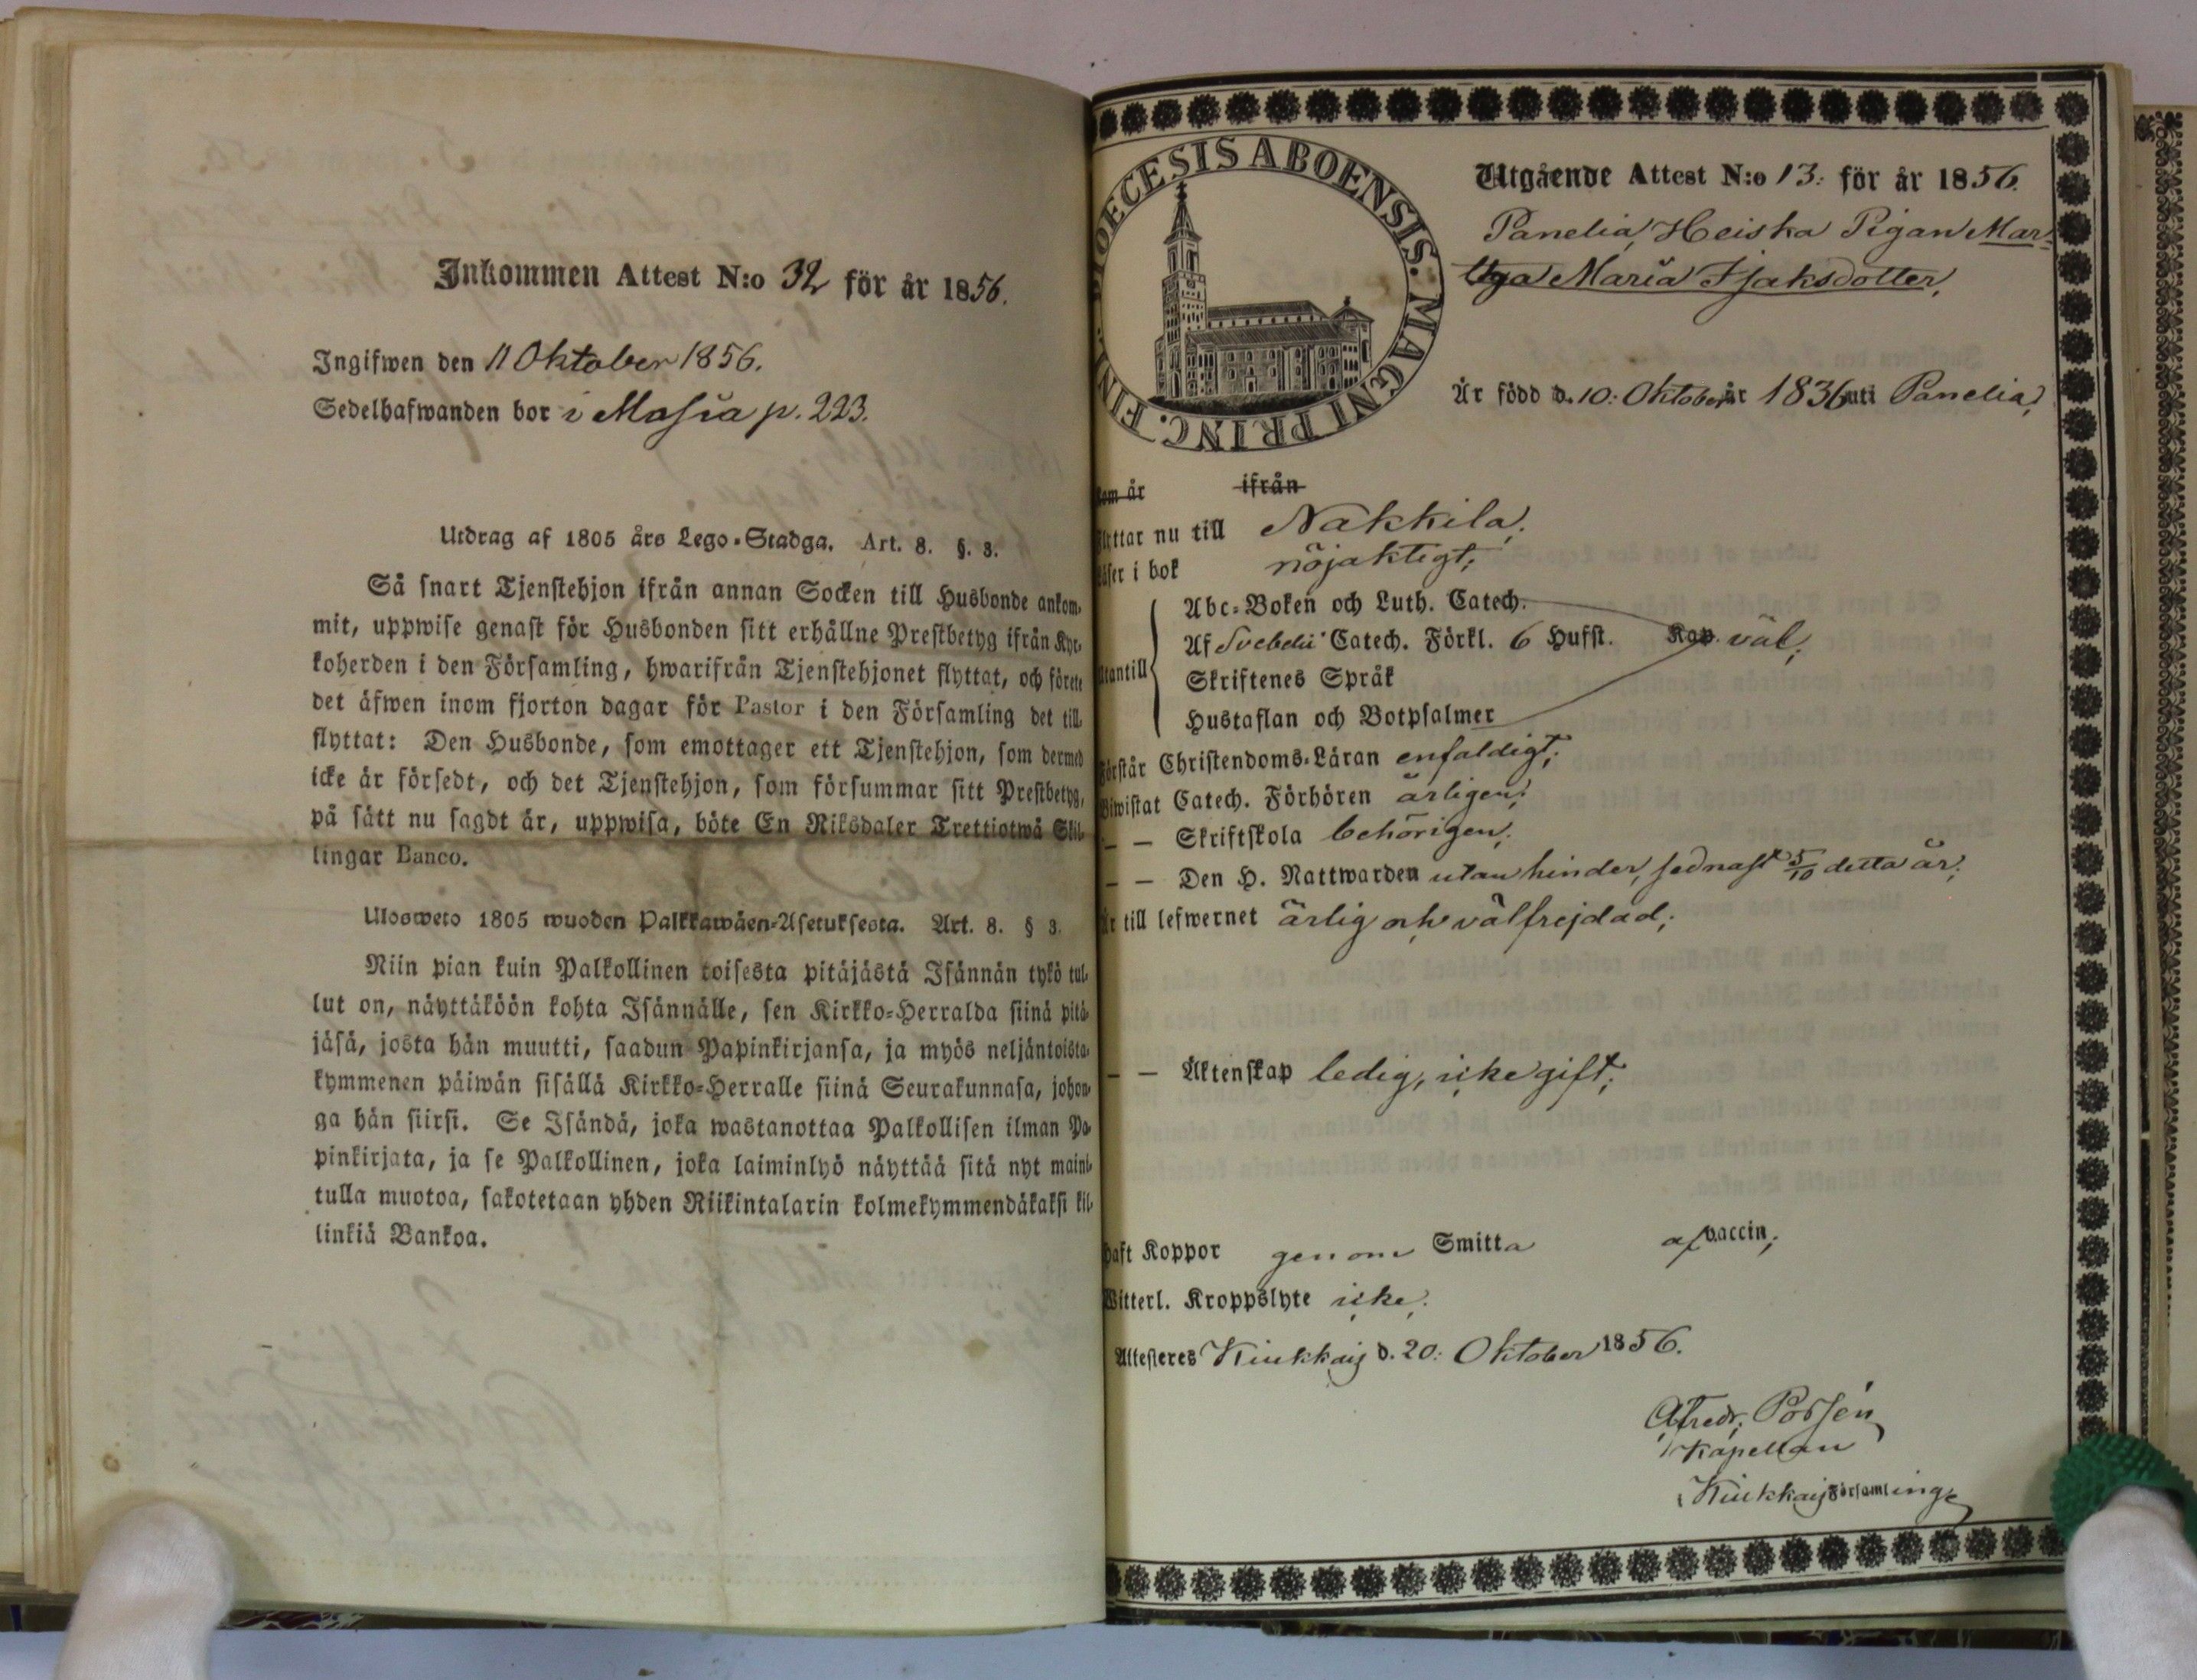 Inkommen Attest N:o 32 för år 1856.
Ingifwen den 11 Oktober 1856.
Sedelhafwanden bor i Masia p. 223.
Utdrag af 1805 års Lego-Stadga. Art. 8. §. 3.
Så snart Tjenstehjon ifrån annan Socken till Husbonde ankom-
mit, uppwise genast för Husbonden sitt erhållne Prestbetyg ifrån Kyr-
koherden i den Församling, hwarifrån Tjenstehjonet flyttat, och förete
det äfwen inom fjorton dagar för Pastor i den Församling det till-
flyttat: Den Husbonde, som emottager ett Tjenstehjon, som dermed
icke är försedt, och det Tjenstehjon, som försummar sitt Prestbetyg,
på sätt nu sagdt är, uppwisa, böte En Riksdaler Trettiotwå Skil-
lingar Banco.
Ulosweto 1805 wuoden Palkkawäen-Asetuksesta. Art. 8. § 3.
Niin pian kuin Palkollinen toisesta pitäjästä Isännän tykö tul-
lut on, näyttäköön kohta Isännälle, sen Kirkko-Herralda siinä pitä-
jäsä, josta hän muutti, saadun Papinkirjansa, ja myös neljäntoista-
kymmenen päiwän sisällä Kirkko-Herralle siinä Seurakunnasa, johon-
ga hän siirsi. Se Isändä, joka wastanottaa Palkollisen ilman Pa-
pinkirjata, ja se Palkollinen, joka laiminlyö näyttää sitä nyt maini-
tulla muotoa, sakotetaan yhden Riikintalarin kolmekymmendäkaksi kil-
linkiä Bankoa.
DIOECESIS ABOENSIS. MAGNI PRINC. FINL.
Utgående Attest N:o 13: för år 1856.
Panelia, Heiska Pigan Mar-
tha Maria Isaksdotter,
Är född d. 10: Oktober år 1836 uti Panelia,
kom år ifrån
Flyttar nu till Nakkila,
Läser i bok nöjaktigt;
Abc-Boken och Luth. Catech.
Utantill Af Svebelii Catech. Förkl. 6 Hufst. Kap. väl;
Skriftenes Språk
Hustaflan och Botpsalmer
Förstår Christendoms-Läran enfaldigt;
Biwistat Catech. Förhören årligen;
— — Skriftskola behörigen;
— — Den H. Nattwarden utan hinder, sednast 5/10 detta år;
Är till lefwernet ärlig och välfrejdad;
— — Äktenskap ledig, icke gift;
Haft Koppor genom Smitta af vaccin;
Witterl. Kroppslyte icke.
Attesteres Kiukkais d. 20: Oktober 1856.
Alfredr. Porsén
Kapellan
i Kiukkais Församling